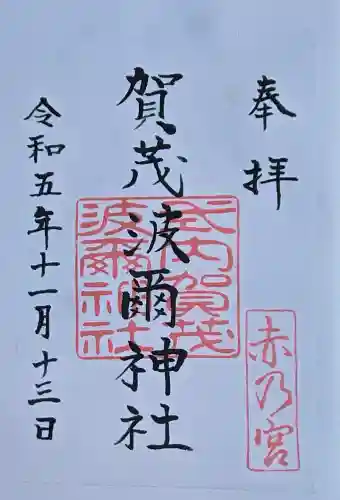 奉拝
賀茂波爾神社
令和五年十一月十三日
式内賀茂
波爾神社
赤乃宮